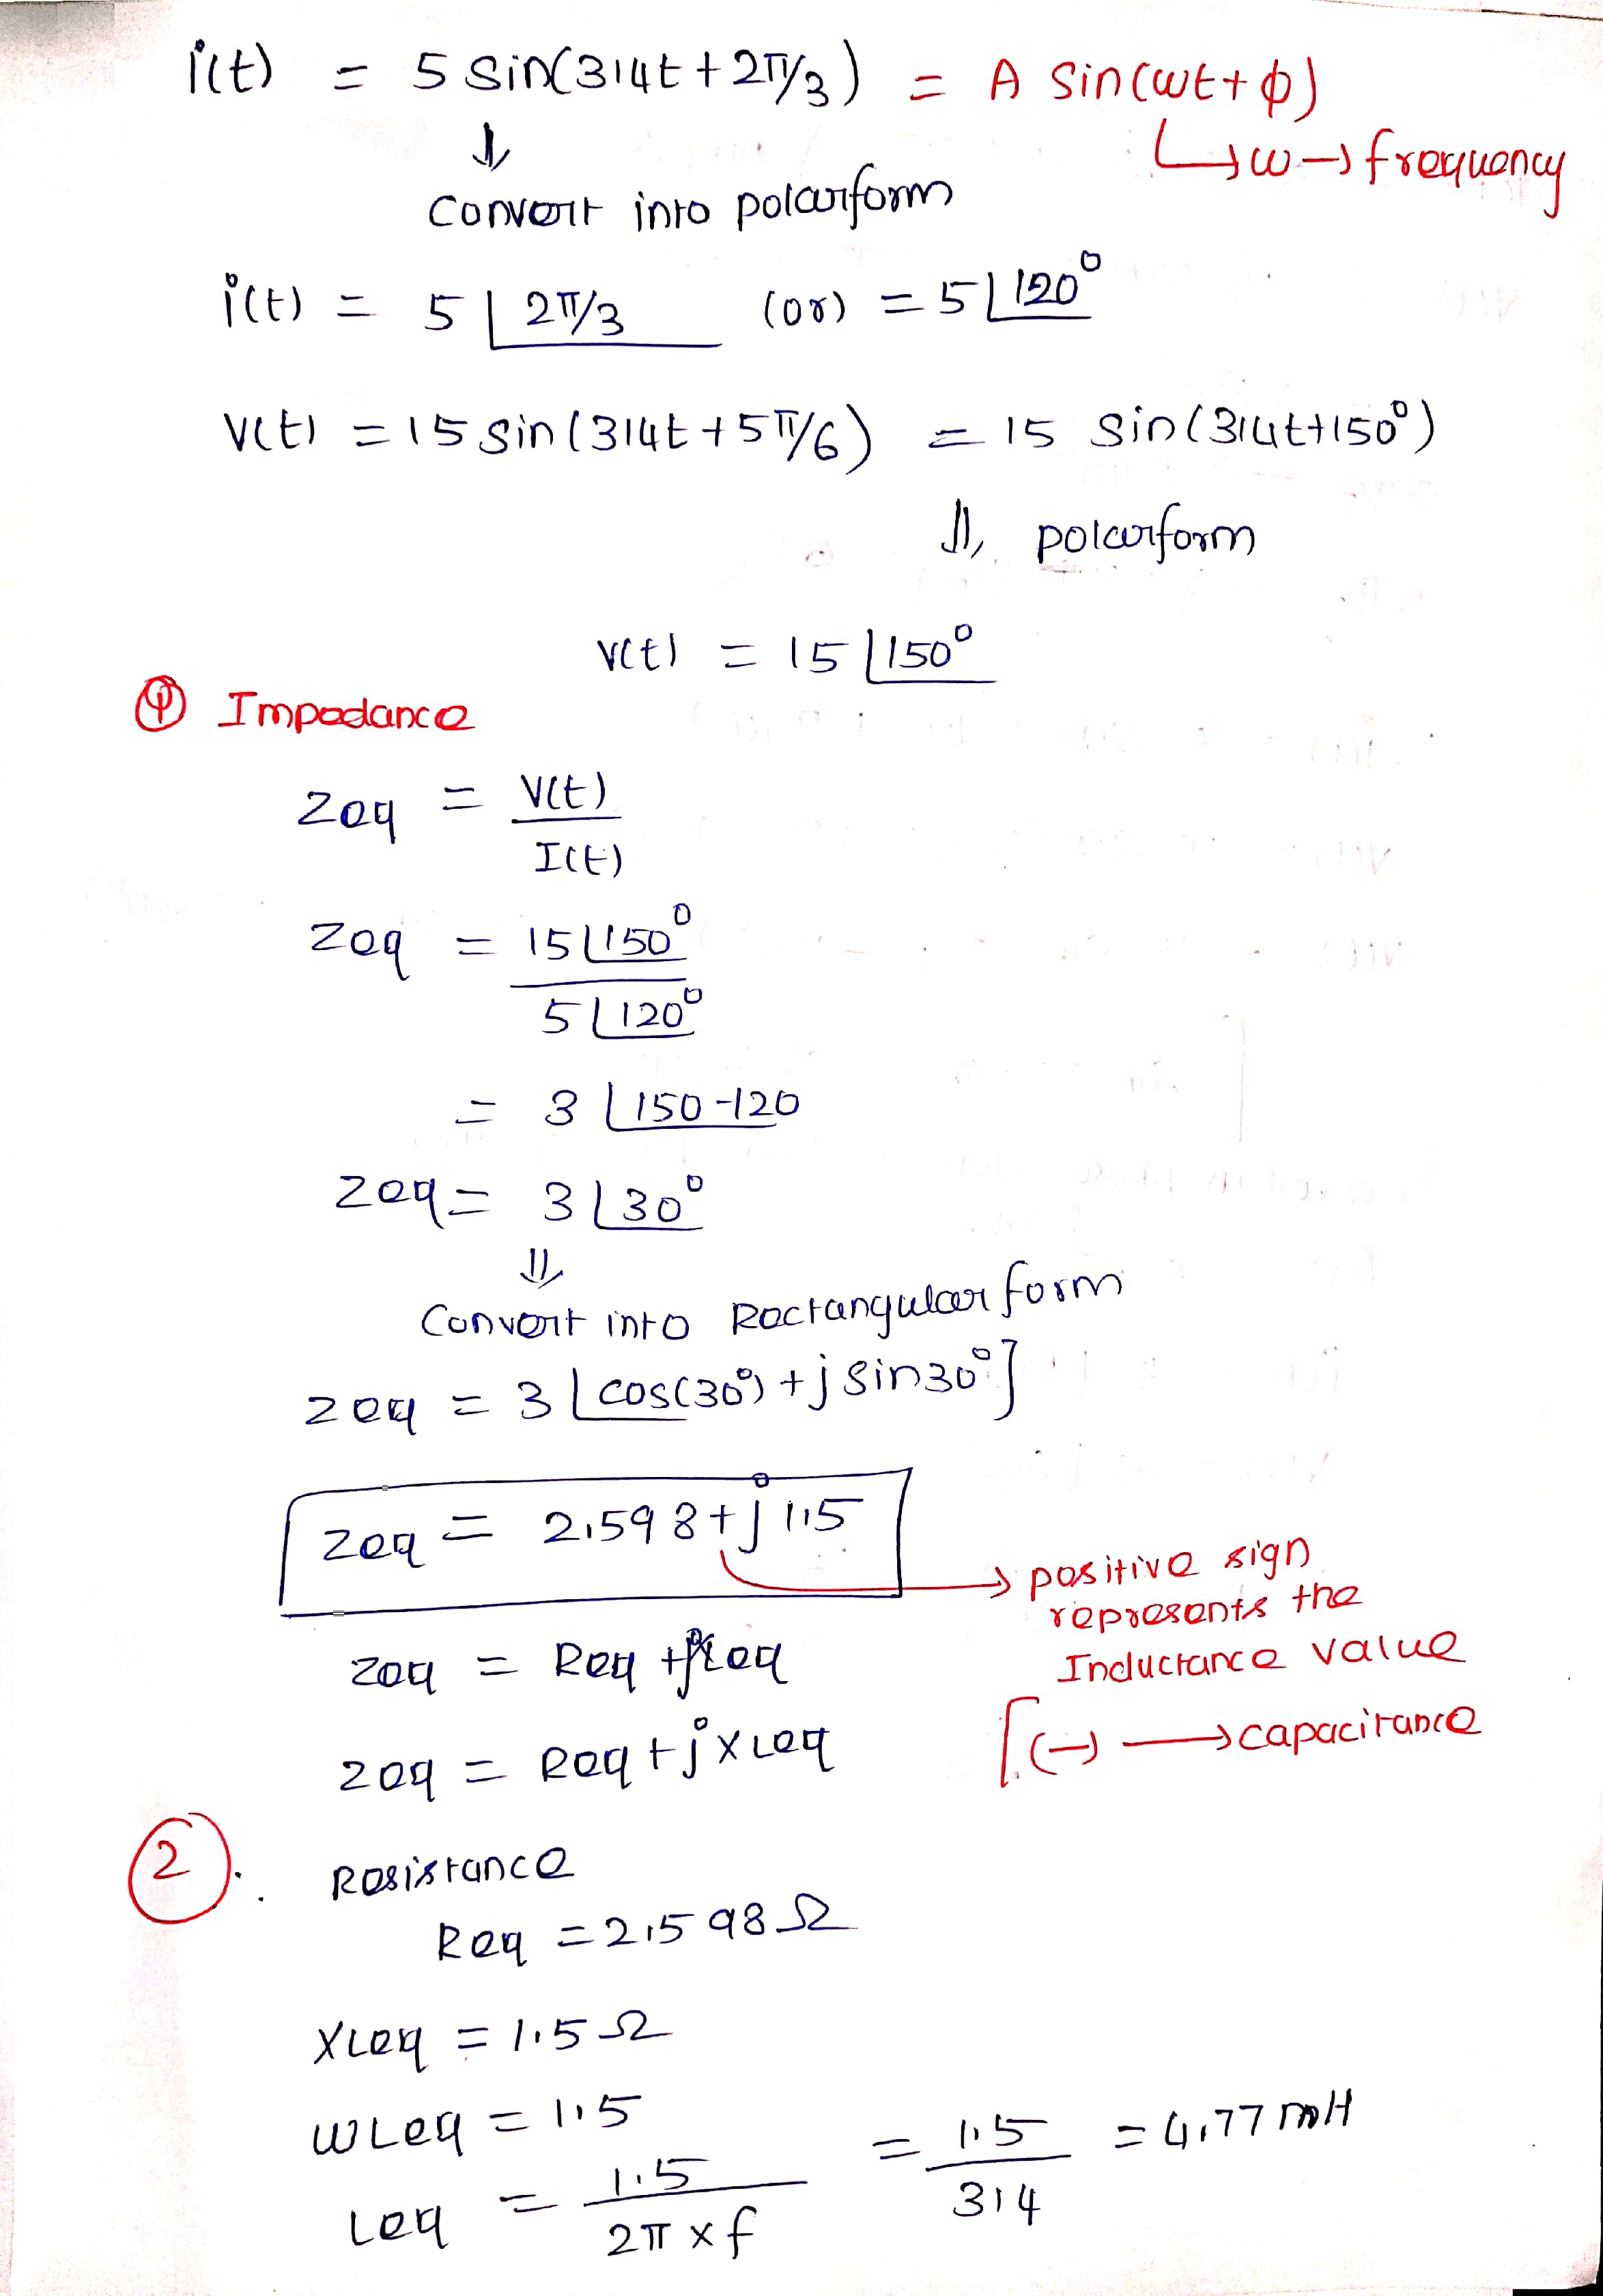 i(t) = 5 sin(314t + 2π/3) = A sin(ωt + ϕ)
⇓ ↳ ω → frequency
Convert into polarform
i(t) = 5∠2π/3 (or) = 5∠120°
V(t) = 15 sin(314t + 5π/6) = 15 sin(314t+150°)
⇓ polarform
V(t) = 15∠150°
① Impedance
Zeq = V(t) / I(t)
Zeq = 15∠150° / 5∠120°
= 3∠150-120
Zeq = 3∠30°
⇓
Convert into Rectangular form
Zeq = 3[cos(30°) + j sin30°]
Zeq = 2.598 + j 1.5
→ positive sign
represents the
Inductance value
[(-) → capacitance
Zeq = Req + jXeq
Zeq = Req + jXLeq
② Resistance
Req = 2.598 Ω
XLeq = 1.5 Ω
ωLeq = 1.5
Leq = 1.5 / 2π×f = 1.5 / 314 = 4.77 mH